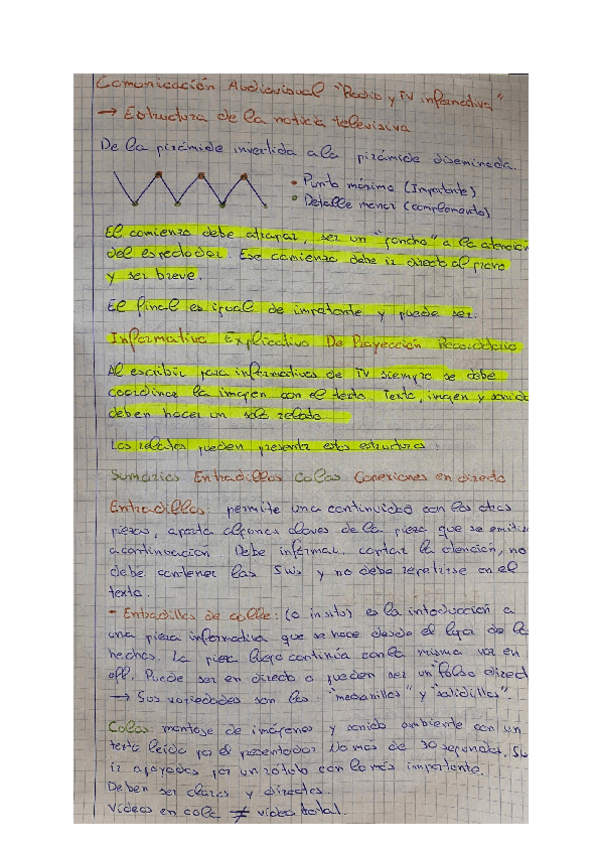 Comunicación Audiovisual "Radio y TV informativa"
→ Estructura de la noticia televisiva
De la pirámide invertida a la pirámide diseminada.
• Punto máximo (Importante)
• Detalle menor (complemento)
El comienzo debe atrapar, ser un "gancho" a la atención
del espectador. Ese comienzo debe ir directo al grano
y ser breve.
El final es igual de importante y puede ser:
Informativo Explicativo De Proyección Recordatorio
Al escribir para informativos de TV siempre se debe
coordinar la imagen con el texto. Texto, imagen y sonido
deben hacer un solo relato.
Los relatos pueden presentar estas estructuras:
Sumarios Entradillas Colas Conexiones en directo
Entradillas: permite una continuidad con las otras
piezas, aporta algunas claves de la pieza que se emitirá
a continuación. Debe informar, captar la atención, no
debe contener las 5ws y no debe repetirse en el
texto.
- Entradillas de calle: (o insitu) es la introducción a
una pieza informativa que se hace desde el lugar de los
hechos. La pieza luego continúa con la misma voz en
off. Puede ser en directo o pueden ser un "falso direct
→ Sus variedades son las: "medianillas" y "salidillas".
Colas: montaje de imágenes y sonido ambiente con un
texto leído por el presentador. No más de 30 segundos. Su
ir apoyados por un rótulo con lo más importante.
Deben ser claros y directos.
Videos en cola ≠ video total.